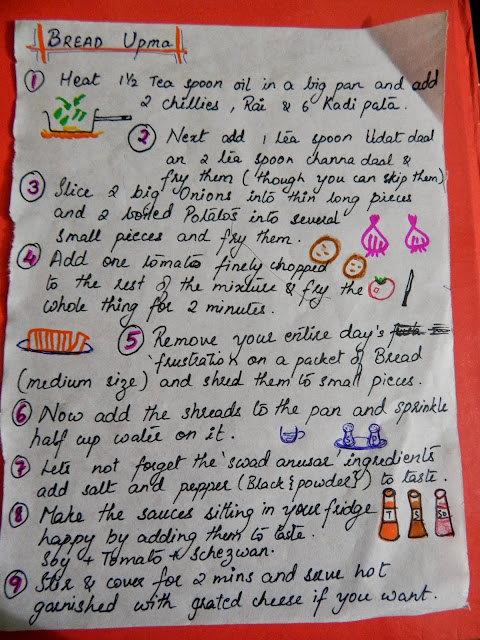 BREAD UPMA
1 Heat 1½ Tea spoon oil in a big pan and add
2 chillies, Rai & 6 Kadi pata.
2 Next add 1 tea spoon Udat daal
an 2 tea spoon channa daal &
fry them (though you can skip them)
3 Slice 2 big Onions into thin long pieces
and 2 boiled Potatos into several
small pieces and fry them.
4 Add one tomato finely chopped
to the rest of the mixture & fry the
whole thing for 2 minutes.
5 Remove your entire day's
'frustration' on a packet of Bread
(medium size) and shred them to small pieces.
6 Now add the shreads to the pan and sprinkle
half cup water on it.
7 Lets not forget the 'swad anusar' ingredients
add salt and pepper (Black & powder) to taste.
8 Make the sauces sitting in your fridge
happy by adding them to taste.
Soy + Tomato + Schezwan.
T S So
9 Stir & cover for 2 mins and serve hot
garnished with grated cheese if you want.